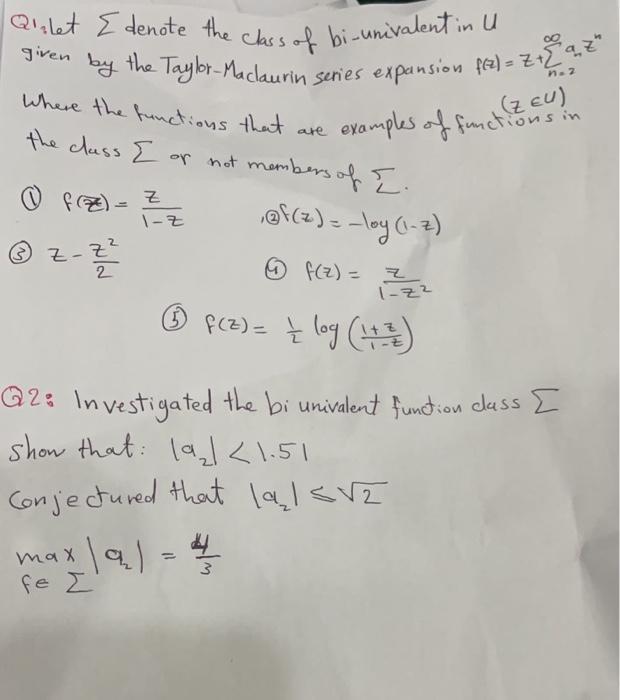 Q1: let Σ denote the class of bi-univalent in U
given by the Taylor-Maclaurin series expansion f(z) = z + ∞ Σ n=2 aₙ zⁿ
(z ∈ U)
Where the functions that are examples of functions in
the class Σ or not members of Σ.
① f(z) = z / 1-z
,② f(z) = -log(1-z)
③ z - z² / 2
④ f(z) = z / 1-z²
⑤ f(z) = 1/2 log (1+z / 1-z)
Q2: Investigated the bi univalent function class Σ
show that: |a₂| < 1.51
Conjectured that |a₂| ≤ √2
max |a₂| = 4/3
f∈ Σ